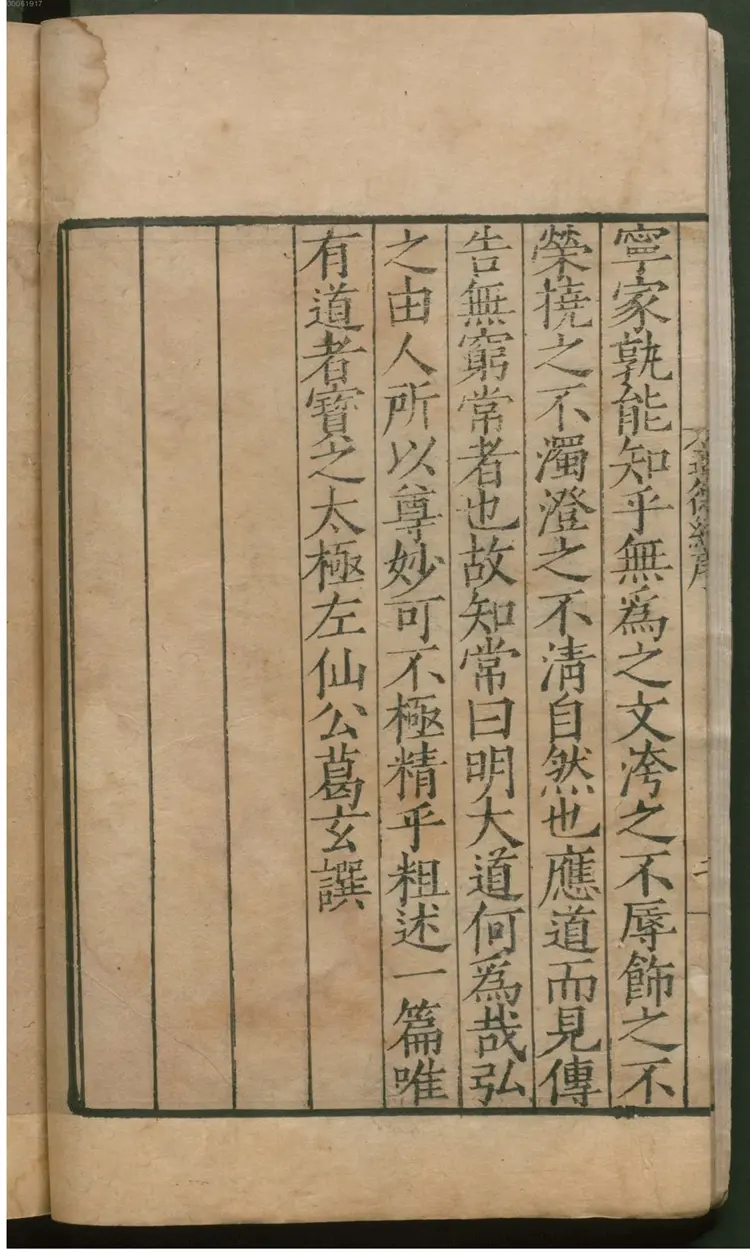 寧家孰能知乎無爲之文洿之不辱飾之不
榮撓之不濁澄之不淸自然也應道而見傳
告無窮常者也故知常曰明大道何爲哉弘
之由人所以尊妙可不極精乎粗述一篇唯
有道者寶之太極左仙公葛玄譔